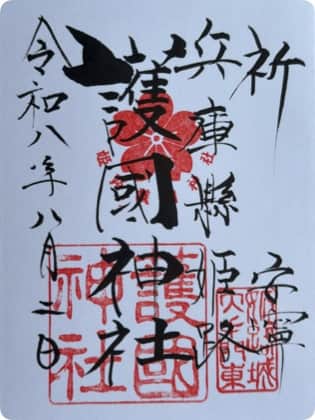 祈 安寧
兵庫縣姫路
護國神社
令和八年八月二日
護國
神社
姫路城
大手東